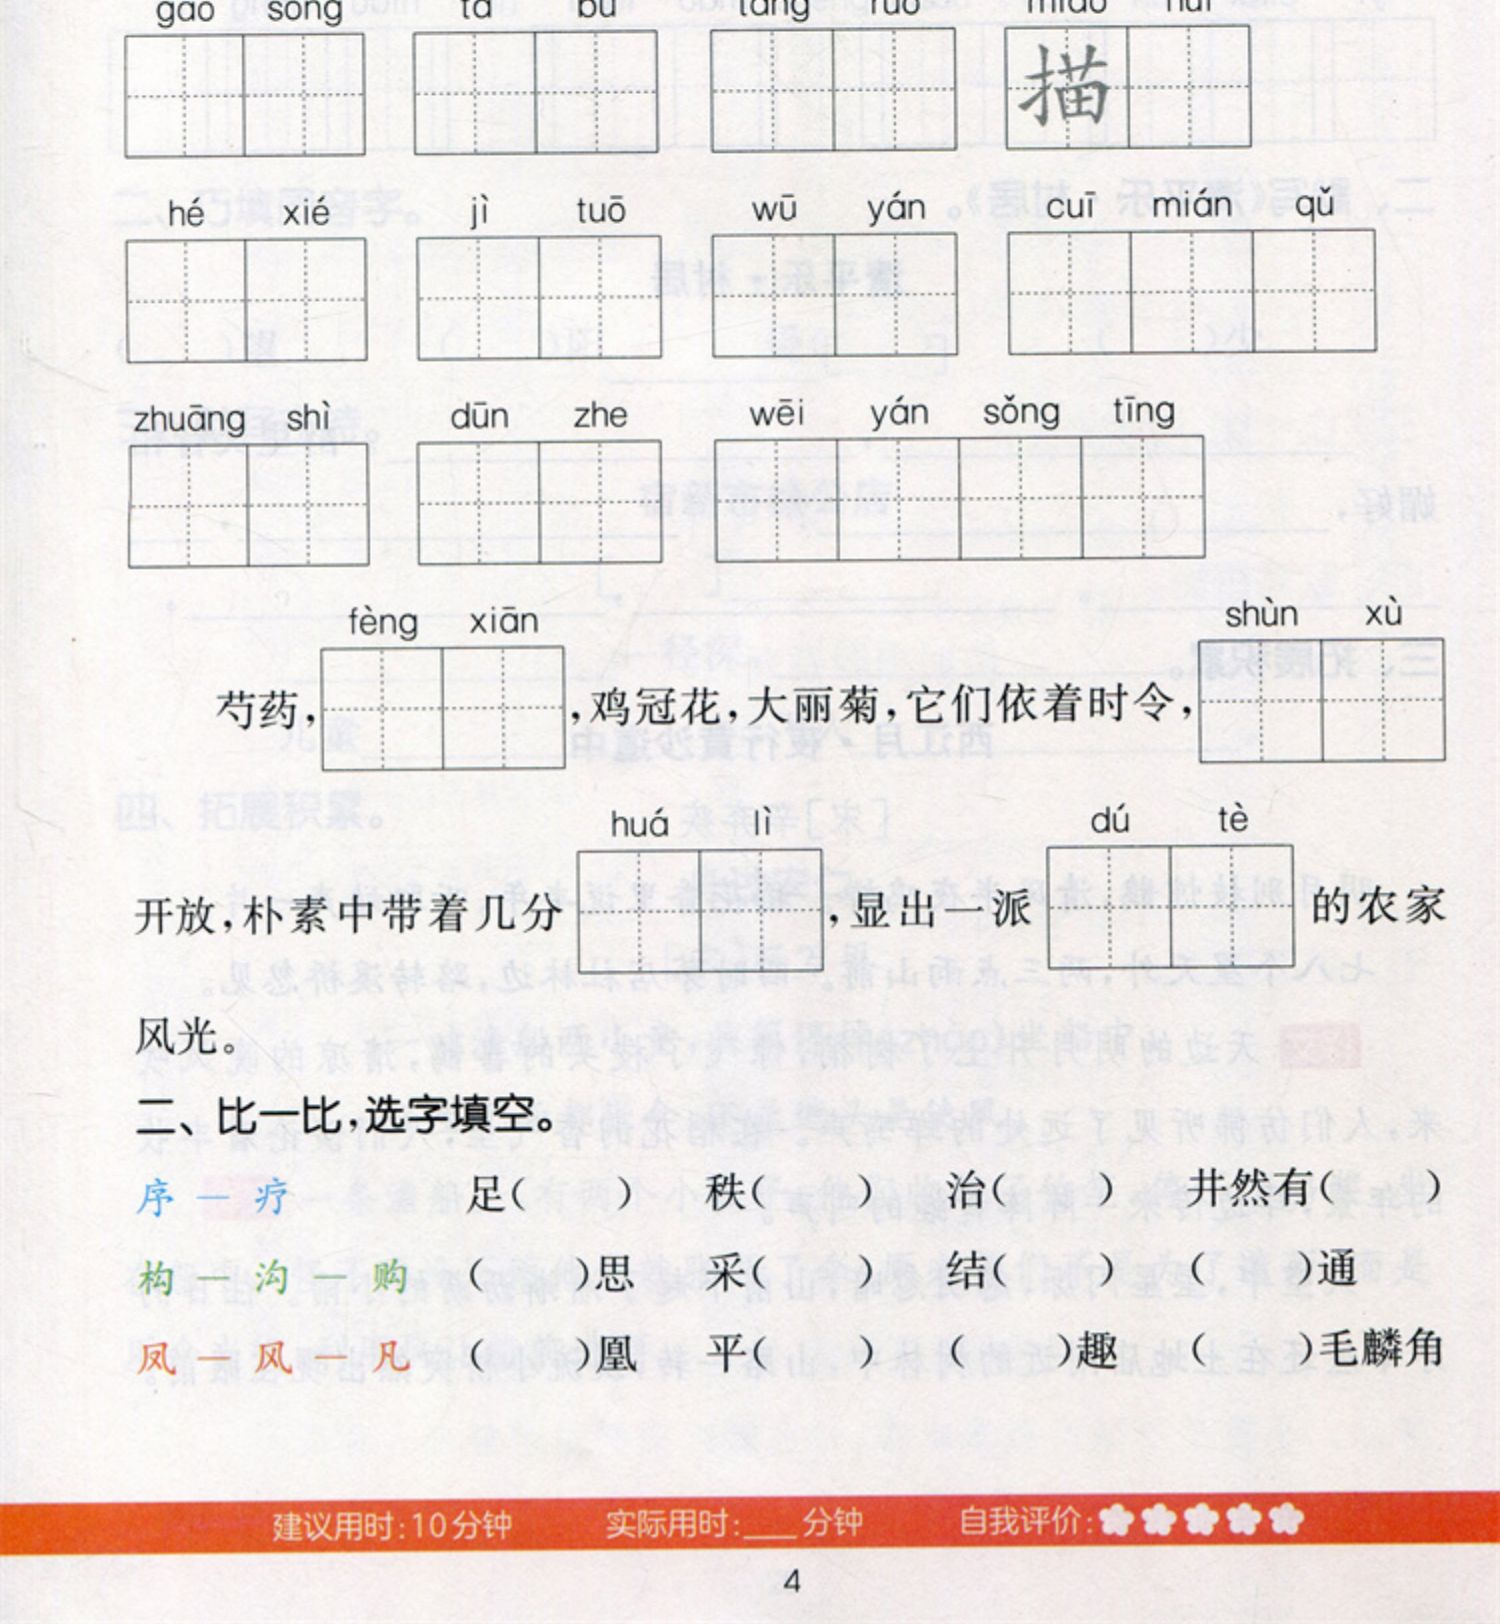 gāo sǒng tā bù tǎng ruò miáo huì
描
hé xié jì tuō wū yán cuī mián qǔ
zhuāng shì dūn zhe wēi yán sǒng tīng
fèng xiān shùn xù
芍药, ,鸡冠花,大丽菊,它们依着时令,
huá lì dú tè
开放,朴素中带着几分 ,显出一派 的农家
风光。
二、比一比,选字填空。
序 — 疗 足( ) 秩( ) 治( ) 井然有( )
构 — 沟 — 购 ( )思 采( ) 结( ) ( )通
凤 — 风 — 凡 ( )凰 平( ) ( )趣 ( )毛麟角
建议用时:10分钟 实际用时:___分钟 自我评价:
4